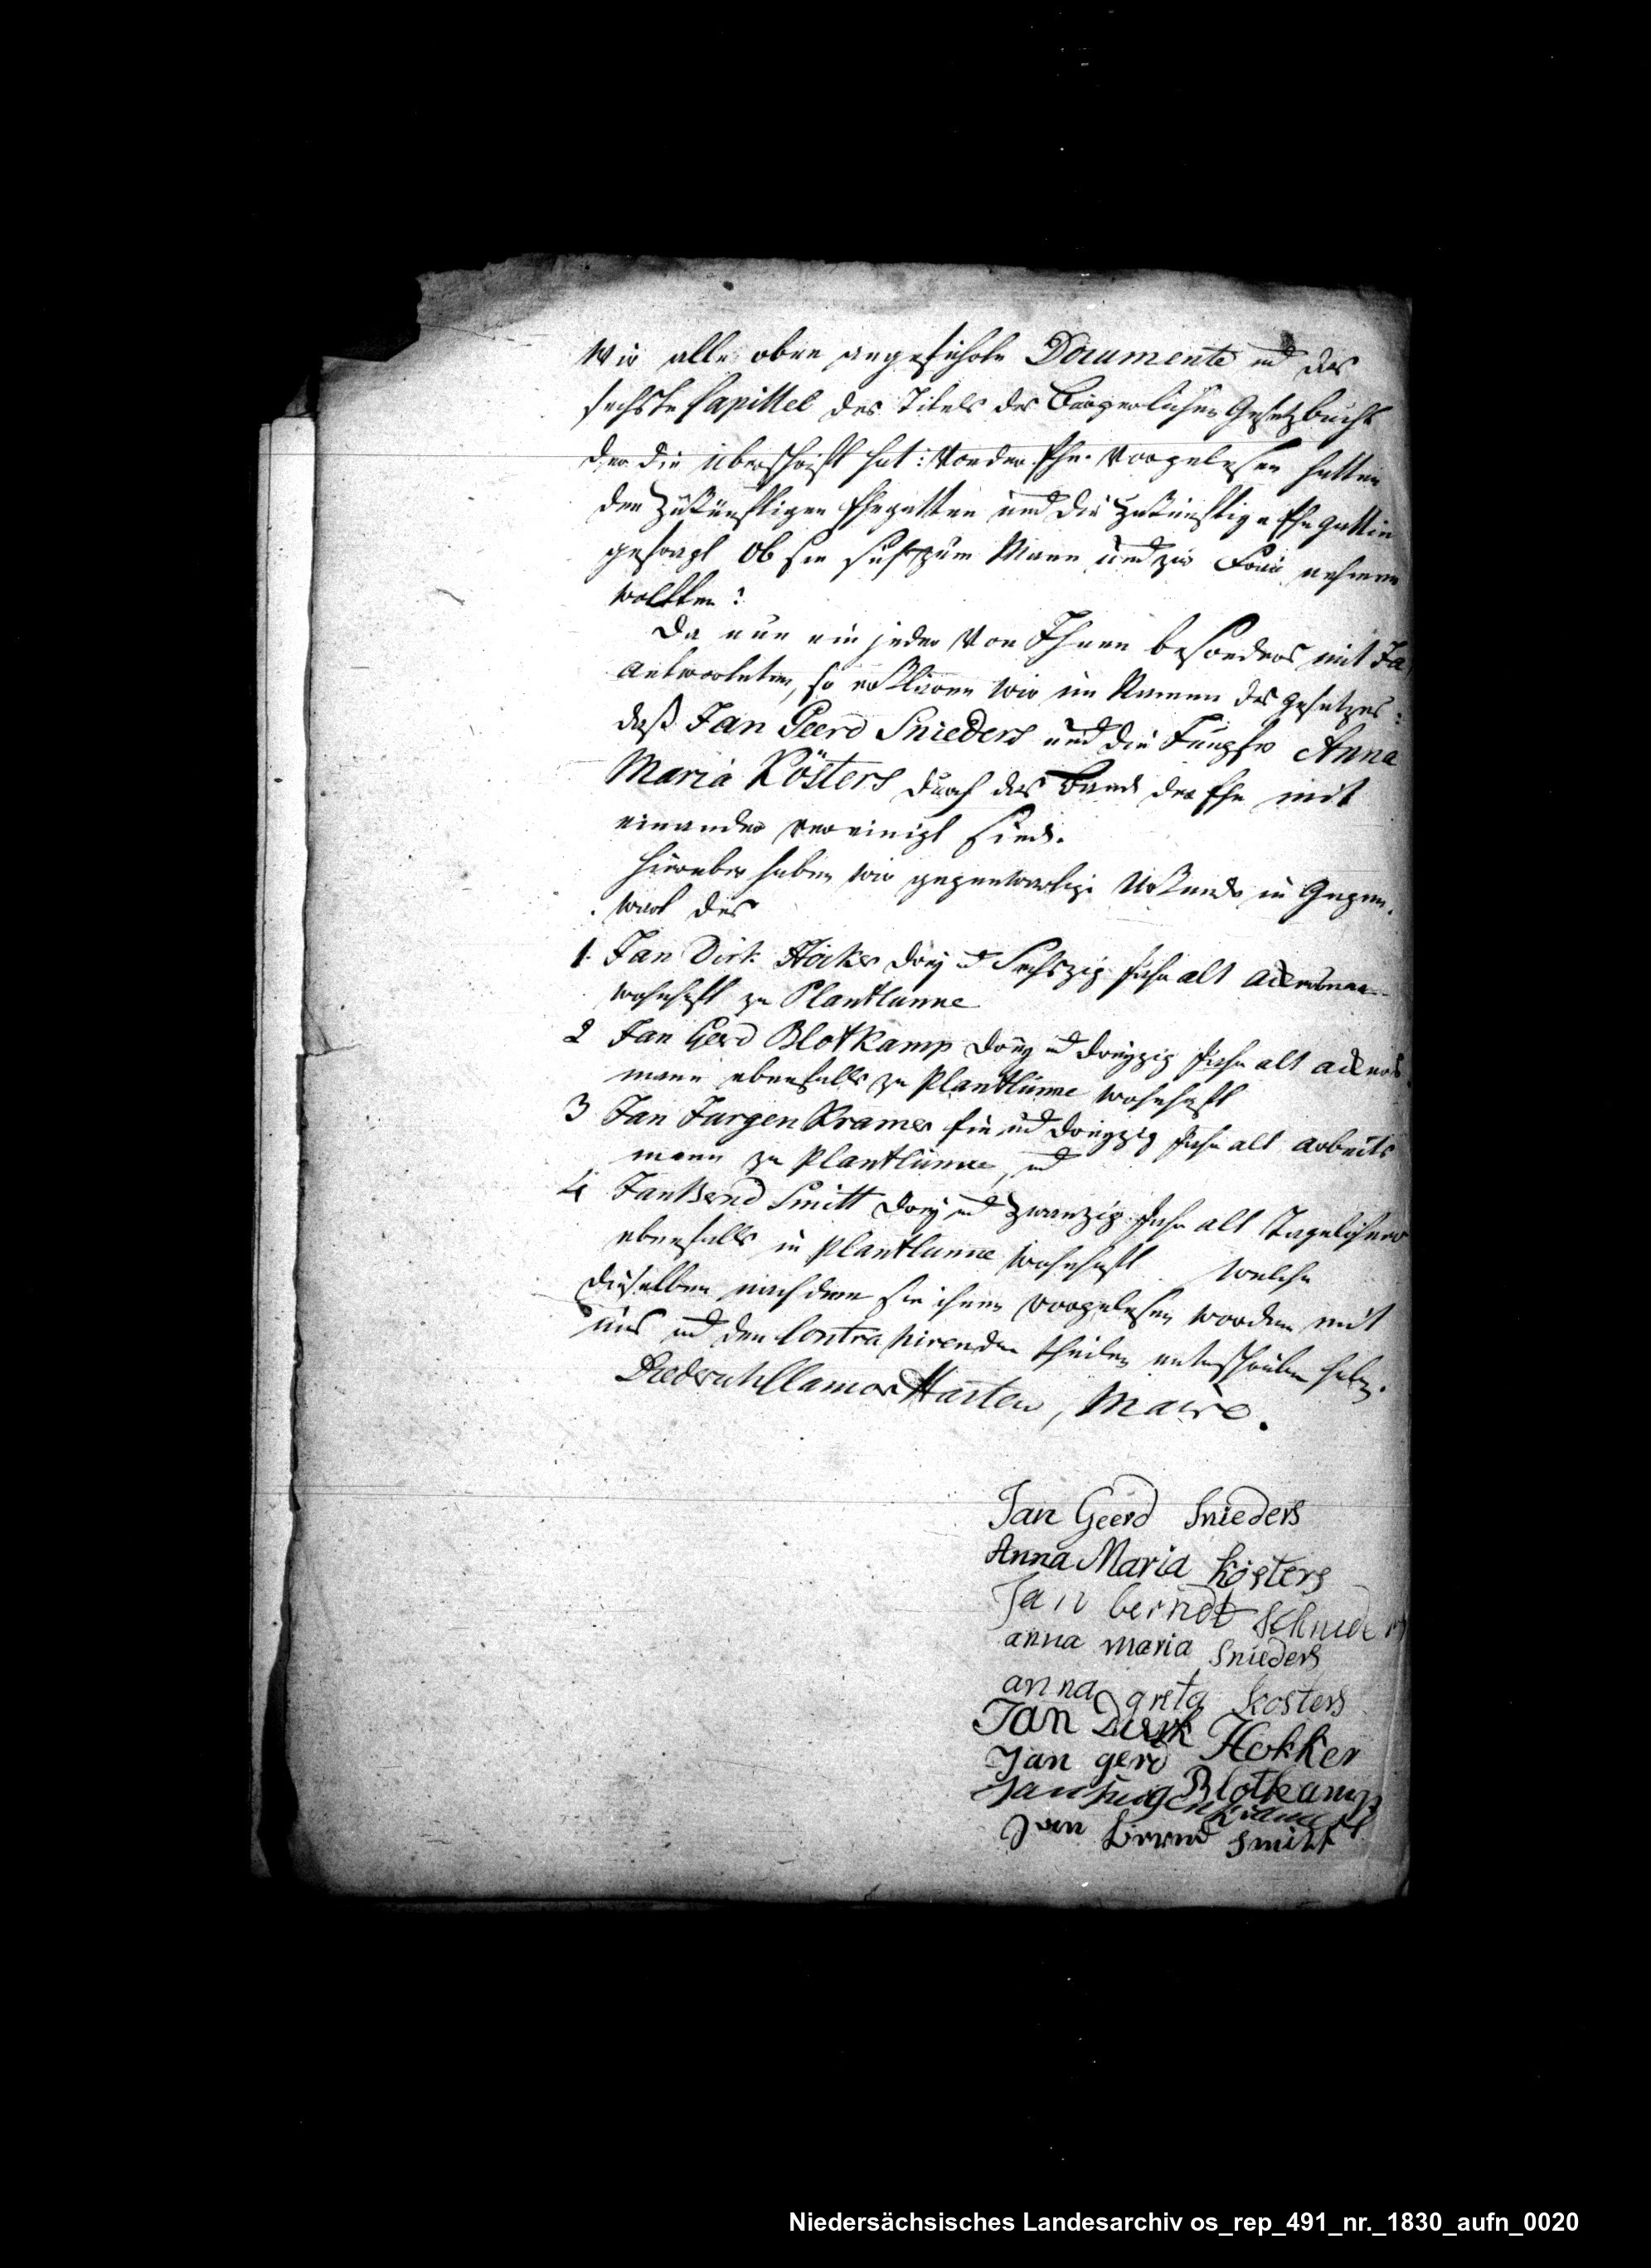 Wir alle oben angeführte Documente und das
sechste Capittel des Titels des Bürgerlichen Gesetzbuchs
der die Überschrift hat: Von der Ehe. vorgelesen hatten
den Zukünftigen Ehegatten und die Zukünftige Ehegattin
gefragt Ob sie sich zum Mann und zur Frau nehmen
wollten?
Da nun ein jeder Von Ihnen besonders mit Ja
Antworteten, so erklären wir im Namen des Gesetzes:
daß Jan Geerd Snieders und die Jungfr Anna
Maria Kösters durch das Band der Ehe mit
einander vereinigt sind.
Hierüber haben wir gegenwärtige Urkunde in Gegen
wart des
1. Jan Dirk Höcker drey u Sechszig Jahr alt Ackersmann
wohnhaft zu Plantlünne
2 Jan Gerd Blotkamp drey u dreyzig Jahr alt Ackers
mann ebenfalls zu Plantlünne wohnhaft
3 Jan Jurgen Kramer ein und dreyzig Jahr alt Arbeits
mann zu Plantlünne, und
4 Jan Bernd Smitt drey und zwanzig Jahr alt Tagelöhner
ebenfalls in Plantlünne wohnhaft welche
dieselben nachdem sie ihnen vorgelesen worden mit
uns und den Contrahirenden Theilen unterschrieben haben.
Maire.
Jan Geerd Snieders
Anna Maria Kösters
Jan berndt Schnieders
anna maria Snieders
anna greta Kosters
Jan Dirk Hokker
Jan gerd Blotkamp
Jan Jurgen Kramer
Jan Bernd Smitt
Niedersächsisches Landesarchiv os_rep_491_nr._1830_aufn_0020